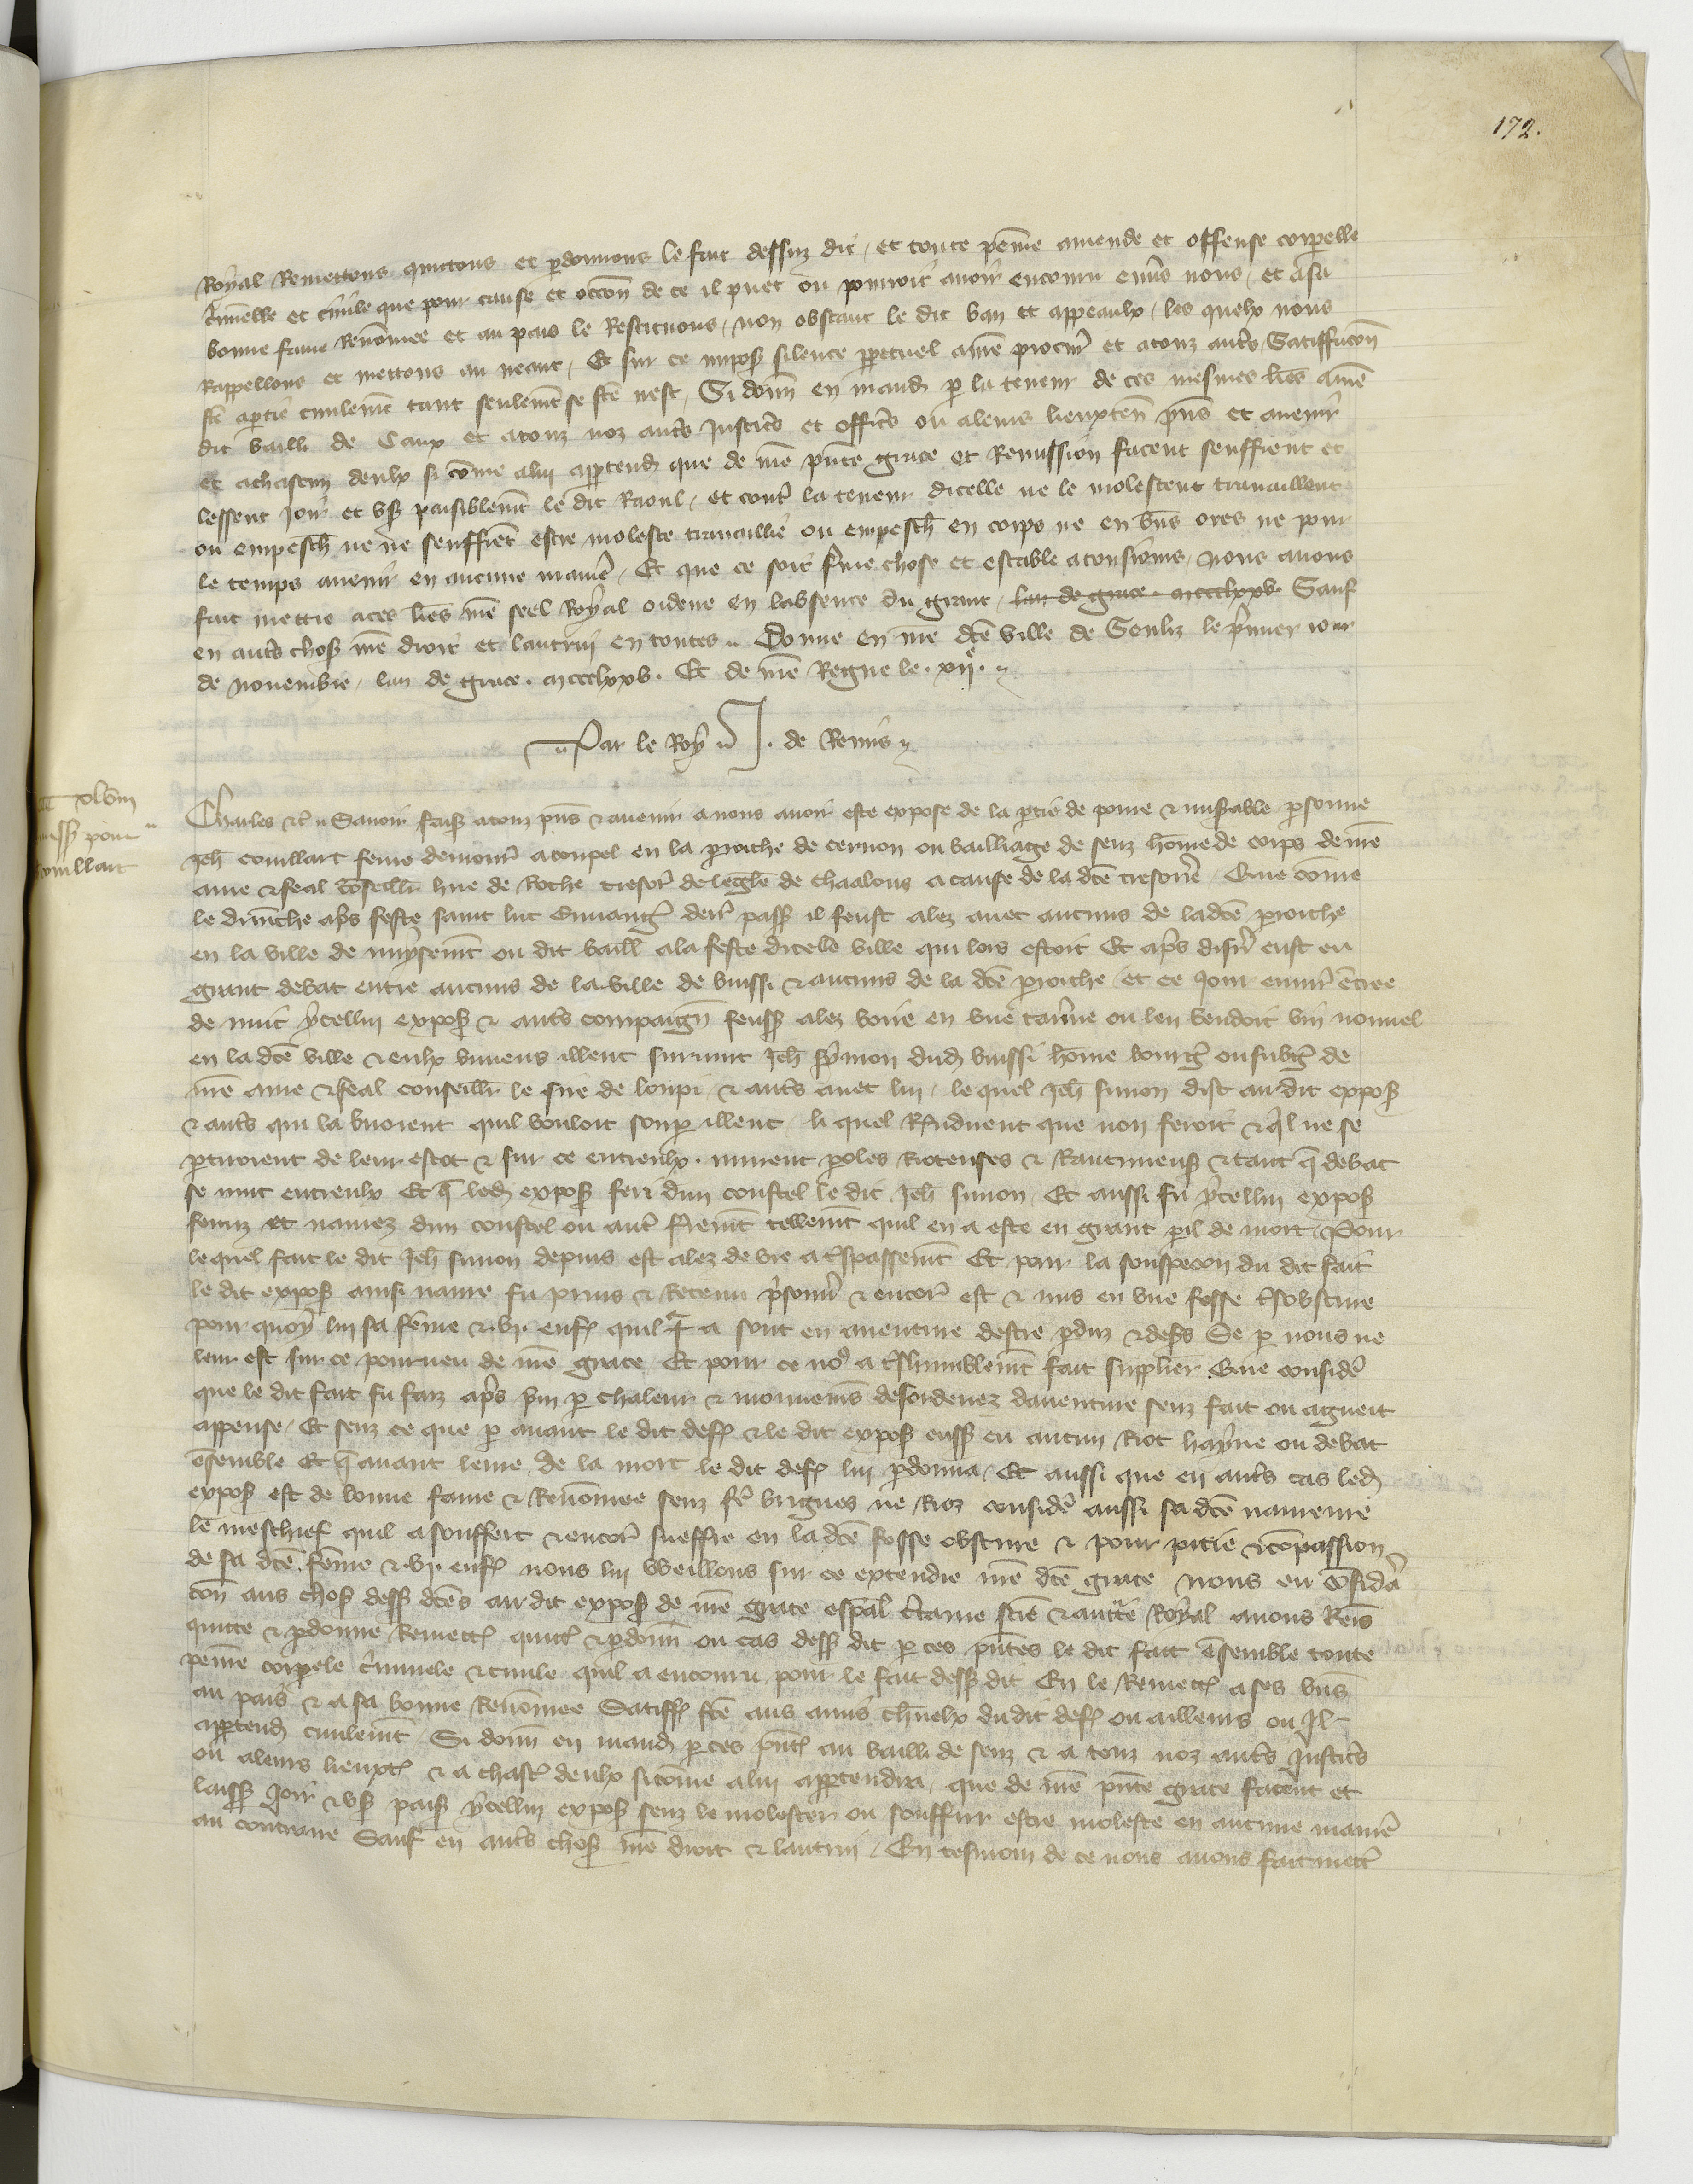 172.
Royal Remettons quictons et pardonnons le fait dessuz dit, et toute peine amende et offense corpelle
criminelle et civile que pour cause et occõn de ce il puet ou pourroit avoir encouru envs nous, et a sa
bonne fame Renõmee et au pais le Restituons, non obstant le dit ban et appeaulx, les quelx nous
Rappellons et mettons au neant, Et sur ce imposs silence ppetuel a nrẽ procur et a touz autrs Satiffaccõn
fcẽ a ptie civilemt tant seulemt se fcẽ nest, Si donn en mand p la teneur de ces mesmes lrẽs a nrẽ
dit bailli de Caux et a touz noz autrs Justicrs et officrs ou a leurs lieuxtenn pñs et avenir
et a chascun deulx si cõme a lui apptend que de nrẽ pñte grace et Remission facent seuffrent et
lessent Joir et vs paisiblemt le dit Raoul, et contr la teneur dicelle ne le molestent travaillent
ou empesch ne ne seuffrent estre moleste travaillie ou empesch en corps ne en bñs ores ne pour
le temps avenir en aucune manie, Et que ce soit ferme chose et estable a tousiours, nous avons
fait mettre a ces lrẽs nrẽ seel Royal ordene en labsence du grant, lan de grace mccclxxv Sauf
en autrs chos nrẽ droit et lautrui en toutes .. Donne en nrẽ dcẽ ville de Senliz le prmier jour
de novembre, lan de grace . mccclxxv. Et de nrẽ Regne le . xiie. ..
.. Par le Roy .. J. de Remis ..
xlviii
pour
couillart
Charles etc .. Savoir faiss a touz pñs & avenir a nous avoir este expose de la ptie de povre & misable psonne
Jeh couillart feme demour a coupel en la proiche de cernon ou bailliage de senz hõme de corps de nrẽ
ame & feal cõseillr hue de Roche tresor de leglẽ de chaalons a cause de la dcẽ tresorie, Que cõme
le dimẽche aps feste saint luc Euvangr derr pass il feust alez avec aucuns de la dcẽ proiche
en la ville de nuysemt ou dit baill a la feste dicele ville qui lors estoit Et aps disnr eust eu
grant debat entre aucuns de la ville de bussi & aucuns de la dcẽ proiche, et ce Jour envir ẽtree
de nuit ycellui expos & autrs compaign feuss alez boire en une tavrne ou len vendoit vin nouvel
en la dcẽ ville & eulx buvens illeuc survint Jeh symon dud bussi hõme bourg ou subg de
nrẽ ame & feal conseillr le sire de loupi & autrs avec lui, le quel Jeh simon dist au dit expos
& autrs qui la buvoient quil vouloit soup illeuc, li quel Rndirent que non feroit & ql ne se
ptiroient de leur escot & sur ce entreulx murent poles Rioteuses & Rancuneus & tant q debat
se mut entreulx Et q led expos feri dun coustel le dit Jeh simon, Et aussi fu ycellui expos
feruz et navrez dun coustel ou autr ferremt tellemt quil en a este en grant pil de mort, Pour
lequel fait le dit Jeh simon depuis est alez de vie a trspassemt Et pour la souspecon du dit fait
le dit expos ainsi navre fu prins & Retenu prsonnr & encor est & mis en une fosse tsobscure
pour quoy lui sa fẽme & vi enf quil a sont en aventure destre pduz & desrs Se p nous ne
leur est sur ce pourveu de nrẽ grace Et pour ce no9 a tshumblemt fait supplier Que considr
que le dit fait fu faiz aps vin p chaleur & mouvems desordenez daventure senz fait ou agueit
appense, Et senz ce que p avant le dit def & le dit expos euss eu aucun Riot hayne ou debat
ẽsemble Et q avant leure de la mort le dit def lui pdonna, Et aussi que en autrs cas led
expos est de bonne fame & Renõmee senz fr brigues ne Rioz considr aussi sa dcẽ navreure
le meschief quil a souffert & encor sueffre en la dcẽ fosse obscure & pour pitie & cõpassion
de sa dcẽ fẽme & vi enf nous lui weillons sur ce extendre nrẽ dcẽ grace, nous eu cõsidã
cõn aus chos dess dcẽs au dit expos de nrẽ grace espal ctaine sciẽ & auctte Royal avons Remis
quitte & pdonne Remett quitt & pdonn ou cas dess dit p ces pñtes le dit fait ẽsemble toute
peine corpele criminele & civile quil a encouru pour le fait dess dit En le Remett a ses bñs
au pais & a sa bonne Renõmee Satiff fcẽ aus amis chnelx dudit def ou ailleurs ou Il
apptend civilemt Si donn en mand p ces pñt au bailli de senz & a touz noz autrs Justicrs
ou a leurs lieuxt & a chasc deulx si cõme a lui apptendra, que de nrẽ pñte grace facent et
laiss Joir & vs pais ycellui expos senz le molester ou souffrir estre moleste en aucune manie
au contraire Sauf en autrs chos nrẽ droit & lautrui, En tesmoin de ce nous avons fait mett